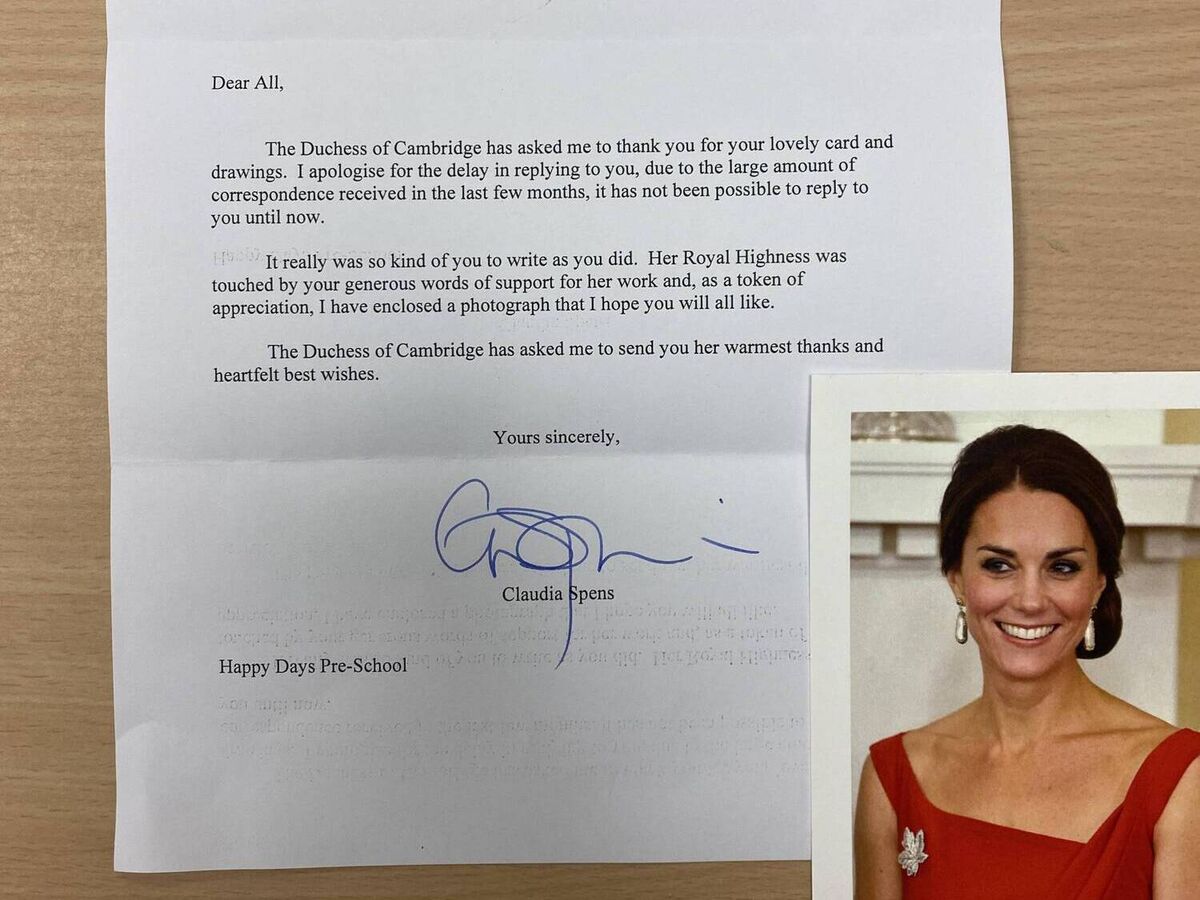 Dear All,
The Duchess of Cambridge has asked me to thank you for your lovely card and
drawings. I apologise for the delay in replying to you, due to the large amount of
correspondence received in the last few months, it has not been possible to reply to
you until now.
It really was so kind of you to write as you did. Her Royal Highness was
touched by your generous words of support for her work and, as a token of
appreciation, I have enclosed a photograph that I hope you will all like.
The Duchess of Cambridge has asked me to send you her warmest thanks and
heartfelt best wishes.
Yours sincerely,
Claudia Spens
Happy Days Pre-School